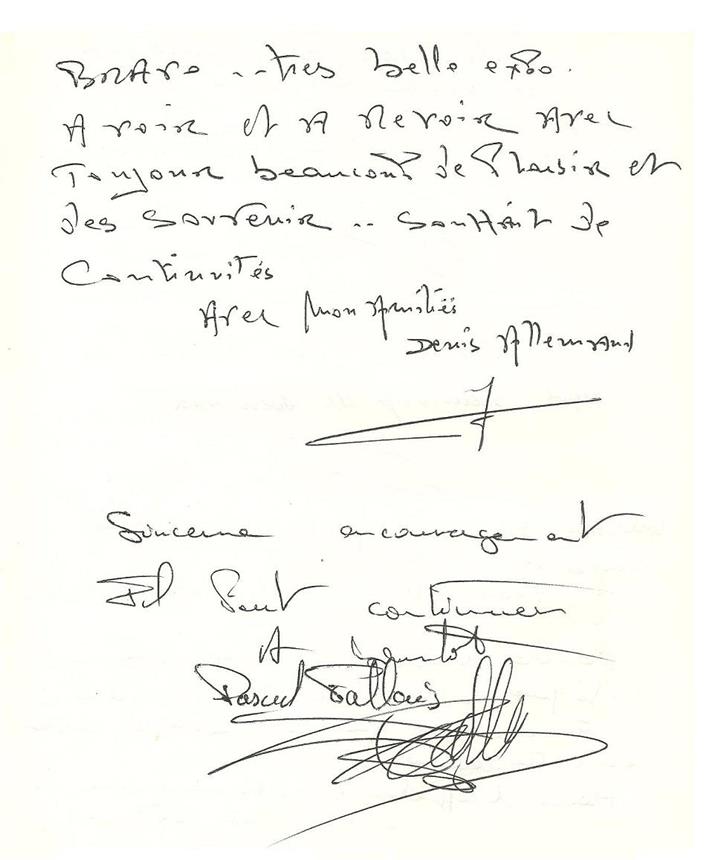 BRAvo ..tres belle expo.
A voir et A Revoir Avec
Toujour beaucoup de Plaisir et
des Souvenir .. Souhait de
Continuités
Avec mon Amitiés
Denis Allemand
Sincerne encouragement
Il Faut continuer
A bientot
Pascal